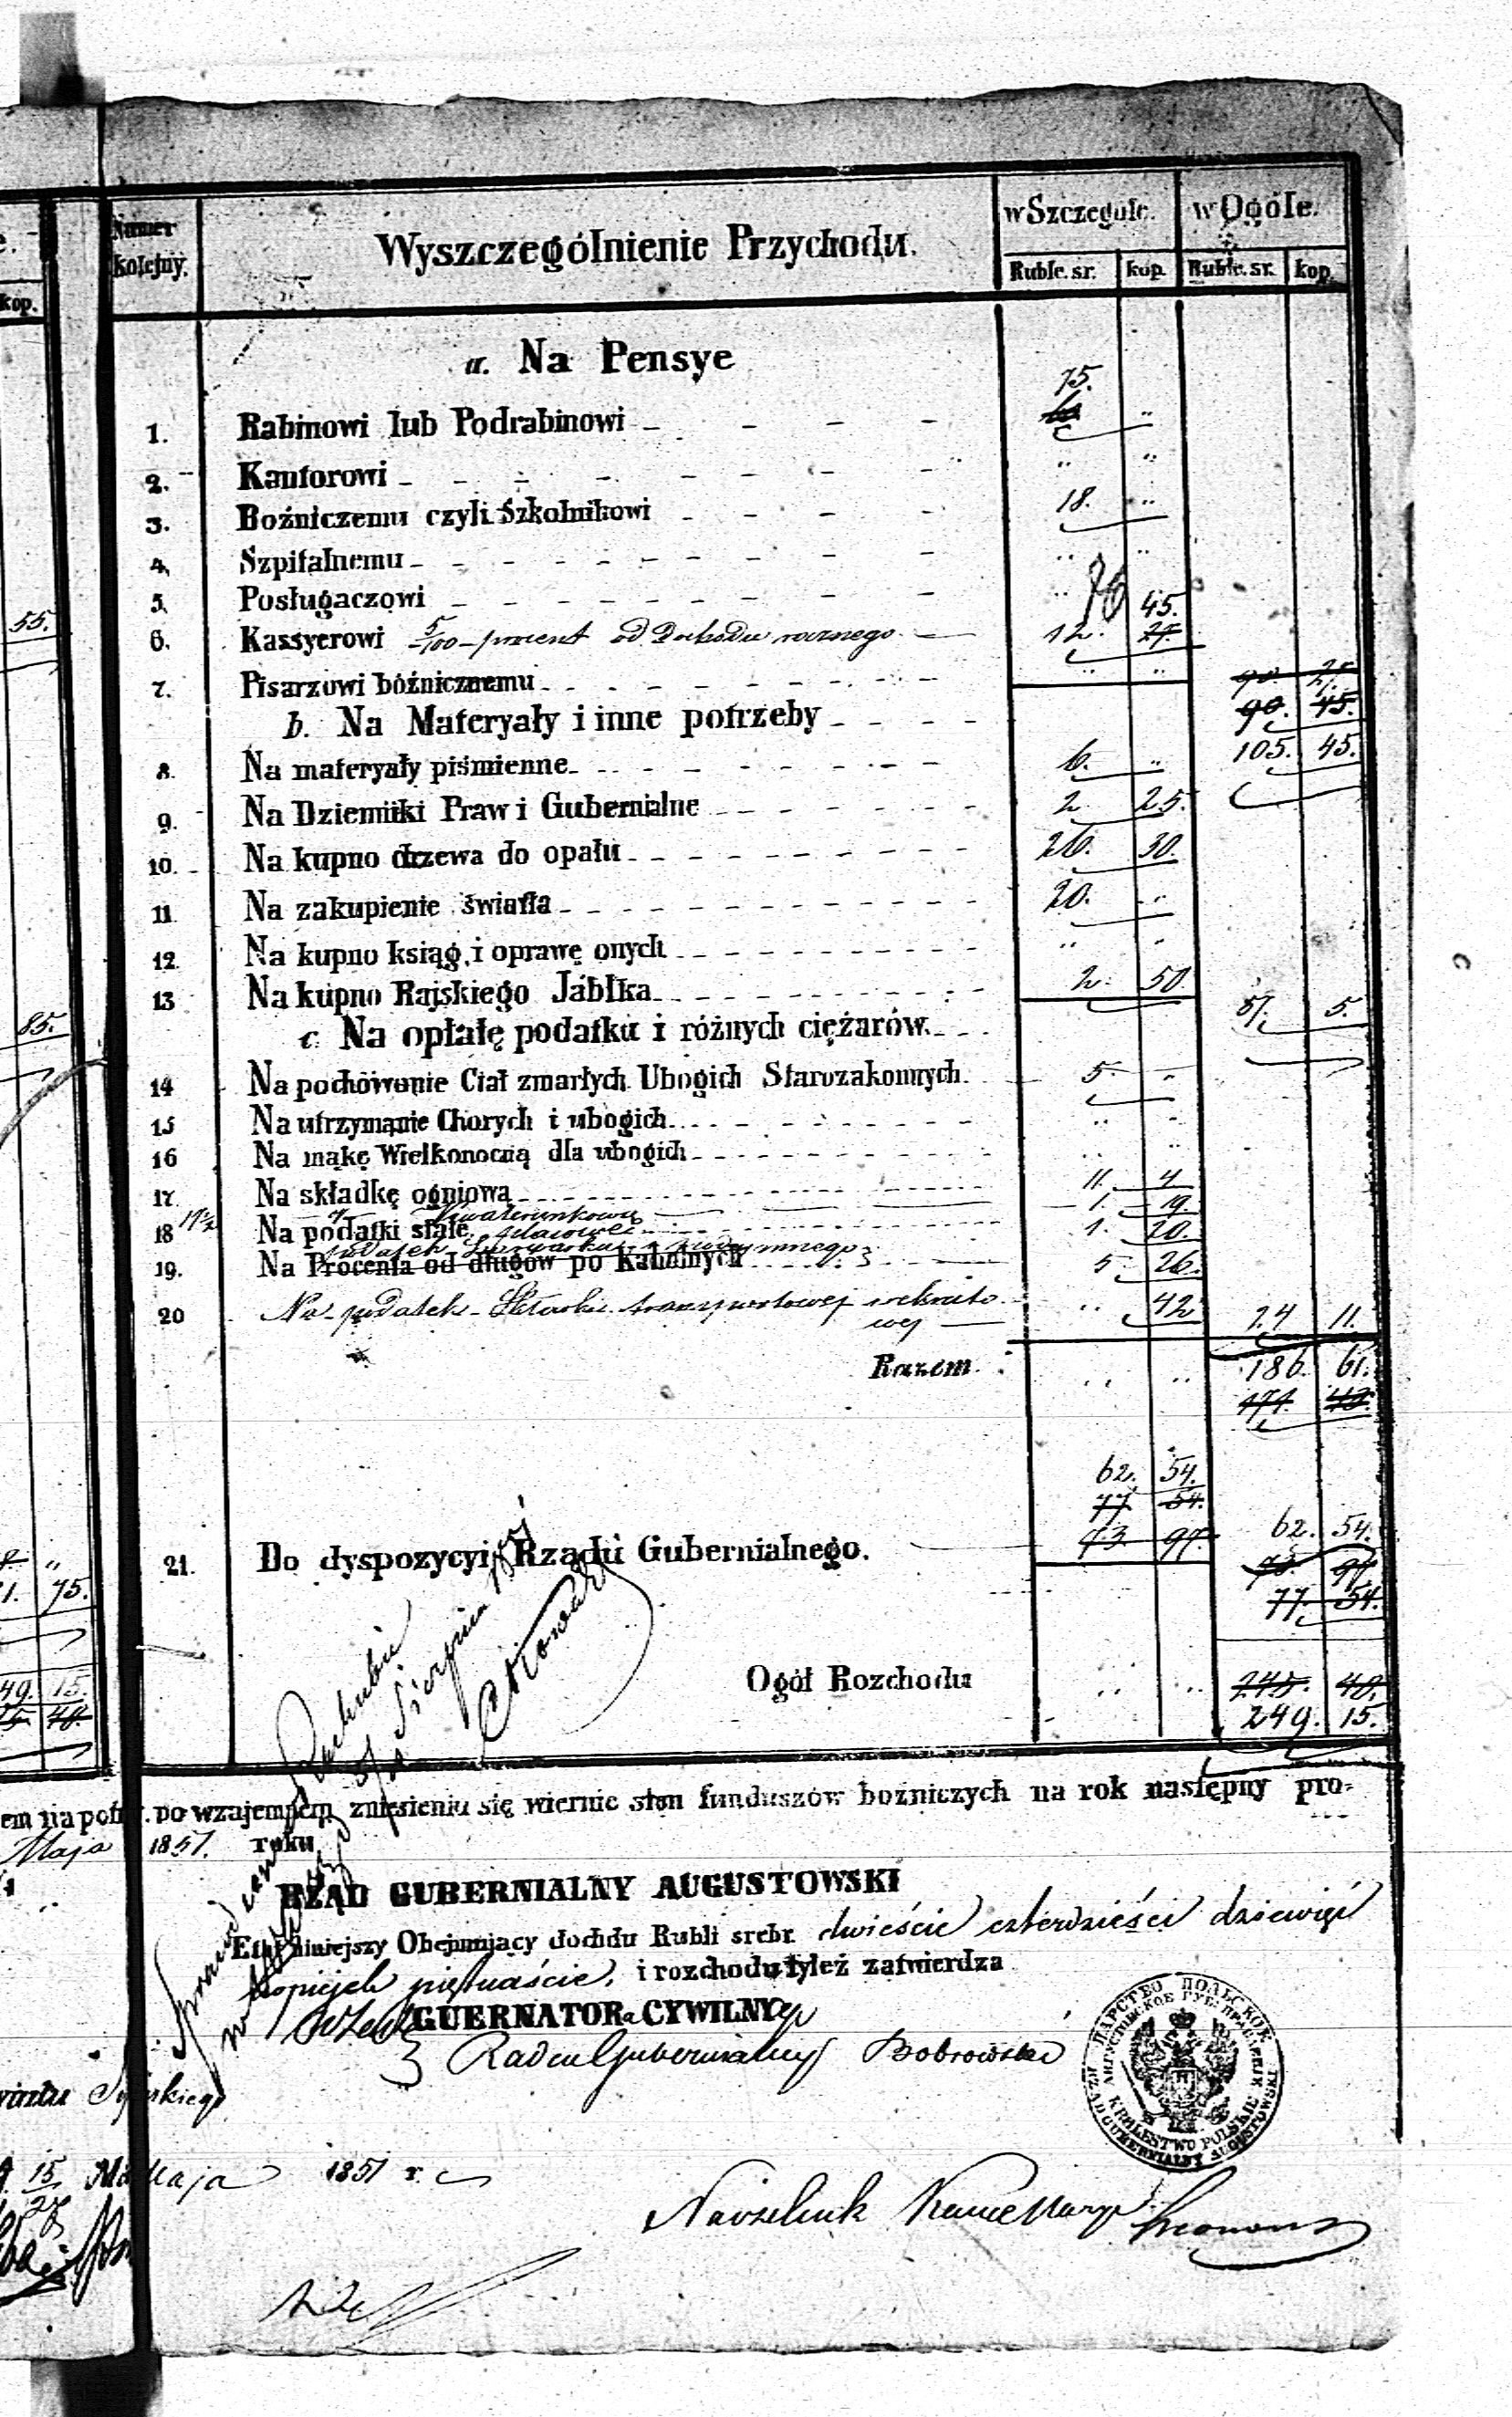 Numer kolejny. Wyszczególnienie Przychodu. w Szczególe. w Ogóle.
Ruble. sr. kop. Ruble. sr. kop.
kop.
a. Na Pensye
75.
1. Rabinowi lub Podrabinowi
2. Kantorowi
3. Bożniczemu czyli Szkolnikowi 18.
4. Szpitalnemu
5. Posługaczowi
55.
45.
6. Kassyerowi 5/100 procent od Dochodu rocznego 12. 27.
7. Pisarzowi bóżnicznemu 90. 27.
b. Na Materyały i inne potrzeby 90. 45.
105. 45.
8. Na materyały piśmienne 6.
9. Na Dzienniki Praw i Gubernialne 2 25.
10. Na kupno drzewa do opału 26. 30.
11. Na zakupienie światła 20.
12. Na kupno ksiąg i oprawę onych
13 Na kupno Rajskiego Jabłka 2. 50
57. 5.
85.
c. Na opłatę podatku i różnych ciężarów.
14 Na pochówanie Ciał zmarłych Ubogich Starozakonnych. 5.
15 Na utrzymanie Chorych i ubogich
16 Na mąkę Wielkonocną dla ubogich
17 Na składkę ogniową 11. 4
17½ Kwaterunkową 1. 19.
18 Na podatki stałe 1. 20.
podatek podymnego
19. Na Procenta od długów po Kahalnych 5 26.
20 Na podatek Składki transportowej rekruto
wej 42 24 11.
Razem. 186. 61.
171. 43.
62. 54.
77. 54.
73 97. 62. 54.
21. Do dyspozycyi Rządu Gubernialnego. 73. 97
77. 54.
75.
Ogół Rozchodu 245. 40.
249. 15.
49. 15.
po wzajemnem zniesieniu się wiernie stan funduszów bożniczych na rok następny pro-
Maja 1851. roku
RZĄD GUBERNIALNY AUGUSTOWSKI
Etat niniejszy Obejmujący dochdu Rubli srebr. dwieście czterdzieści dziewięć
kopiejek piętnaście, i rozchodu tyleż zatwierdza
GUERNATORa CYWILNY
Radca Gubernialny Bobrowski
ЦАРСТВО ПОЛЬСКОЕ
KRÓLESTWO POLSKIE
RZĄD GUBERNIALNY AUGUSTOWSKI
15 Maja 1851 r.
27
Naczelnik Kancellaryi